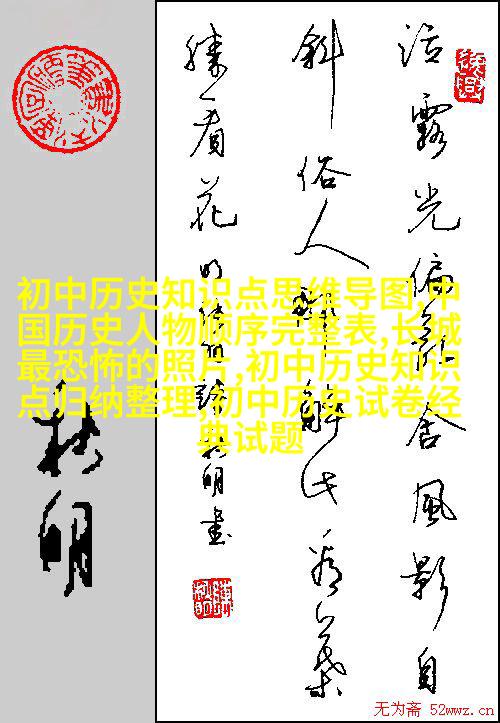 初中历史知识点思维导图,中
国历史人物顺序完整表,长城
最恐怖的照片,初中历史知识
点归纳整理,初中历史试卷经
典试题
沾露光偏乱含风影自
斜俗人那解此看葉
胜看花
无为斋 52wwz.cn